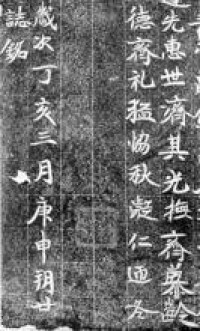 先惠世濟其光撫齊慕齡
德齊礼猛協秋凝仁冬
歲次丁亥三月庚申朔廿
誌銘